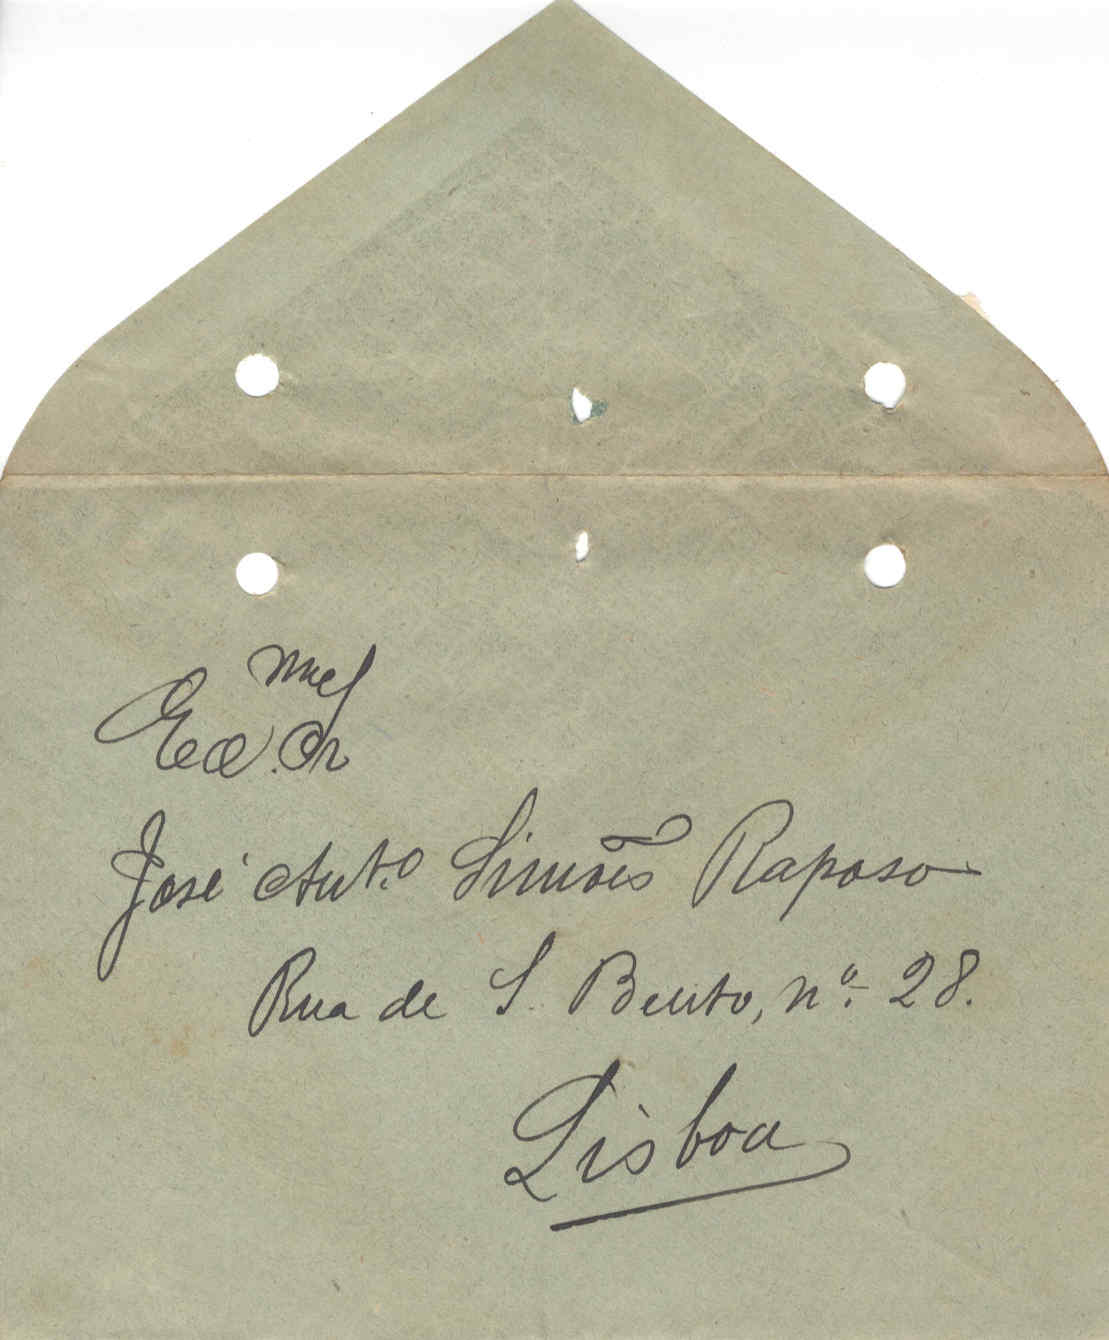 Exmo Sr
José Antº Simões Raposo
Rua de S. Bento, nº 28.
Lisboa